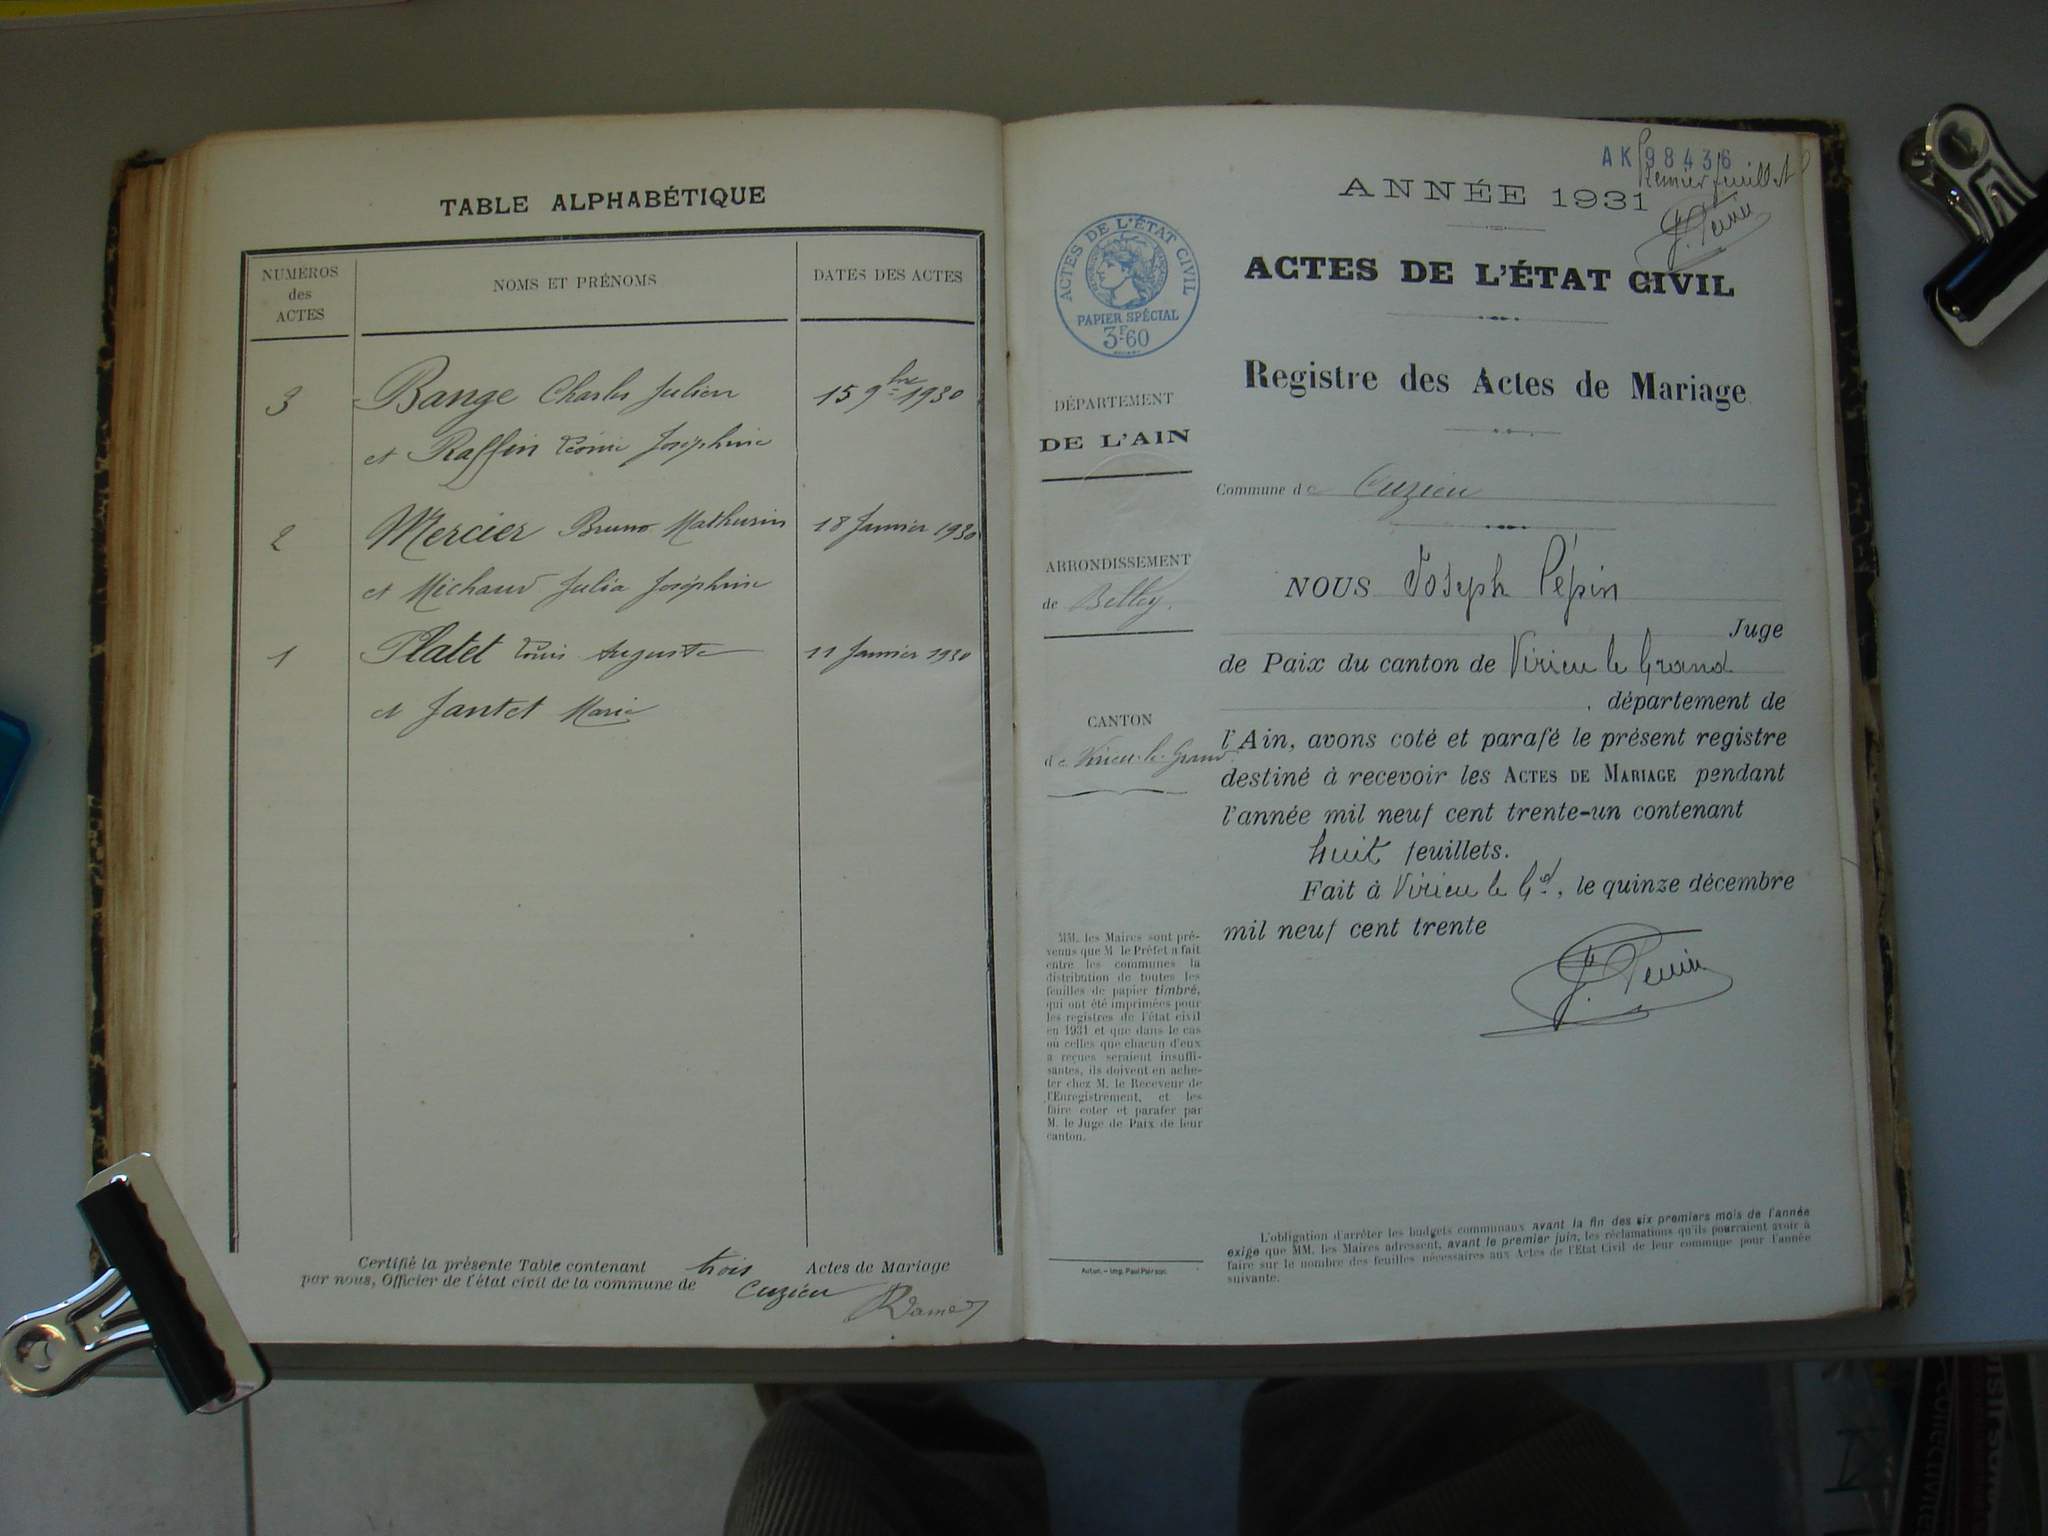 TABLE ALPHABÉTIQUE
NUMEROS
des
ACTES
NOMS ET PRÉNOMS
DATES DES ACTES
3 Bange Charles Julien 15 9bre 1930
et Raffin Léonie Joséphine
2 Mercier Bruno Mathurin 18 Janvier 1930
et Michaud Julia Joséphine
1 Platet Louis Auguste 11 Janvier 1930
et Jantet Marie
Certifié la présente Table contenant trois Actes de Mariage
par nous, Officier de l'état civil de la commune de Cuzieu
AK 98436
Premier feuillet
ANNÉE 1931
ACTES DE L'ÉTAT CIVIL
PAPIER SPÉCIAL
3F60
ACTES DE L'ÉTAT CIVIL
Registre des Actes de Mariage
DÉPARTEMENT
DE L'AIN
Commune de Cuzieu
ARRONDISSEMENT
de Belley.
CANTON
de Virieu-le-Grand
NOUS Joseph Pépin
Juge
de Paix du canton de Virieu le Grand
département de
l'Ain, avons coté et parafé le présent registre
destiné à recevoir les ACTES DE MARIAGE pendant
l'année mil neuf cent trente-un contenant
huit feuillets.
Fait à Virieu le Gd, le quinze décembre
mil neuf cent trente
MM. les Maires sont pré-
venus que M. le Préfet a fait
entre les communes la
distribution de toutes les
feuilles de papier timbré,
qui ont été imprimées pour
les registres de l'état civil
en 1931 et que dans le cas
où celles que chacun d'eux
a reçues seraient insuffi-
santes, ils doivent en ache-
ter chez M. le Receveur de
l'Enregistrement, et les
faire coter et parafer par
M. le Juge de Paix de leur
canton.
Autun. – Imp. Paul Poirson.
L'obligation d'arrêter les budgets communaux avant la fin des six premiers mois de l'année
exige que MM. les Maires adressent, avant le premier juin, les réclamations qu'ils pourraient avoir à
faire sur le nombre des feuilles nécessaires aux Actes de l'Etat Civil de leur commune pour l'année
suivante.